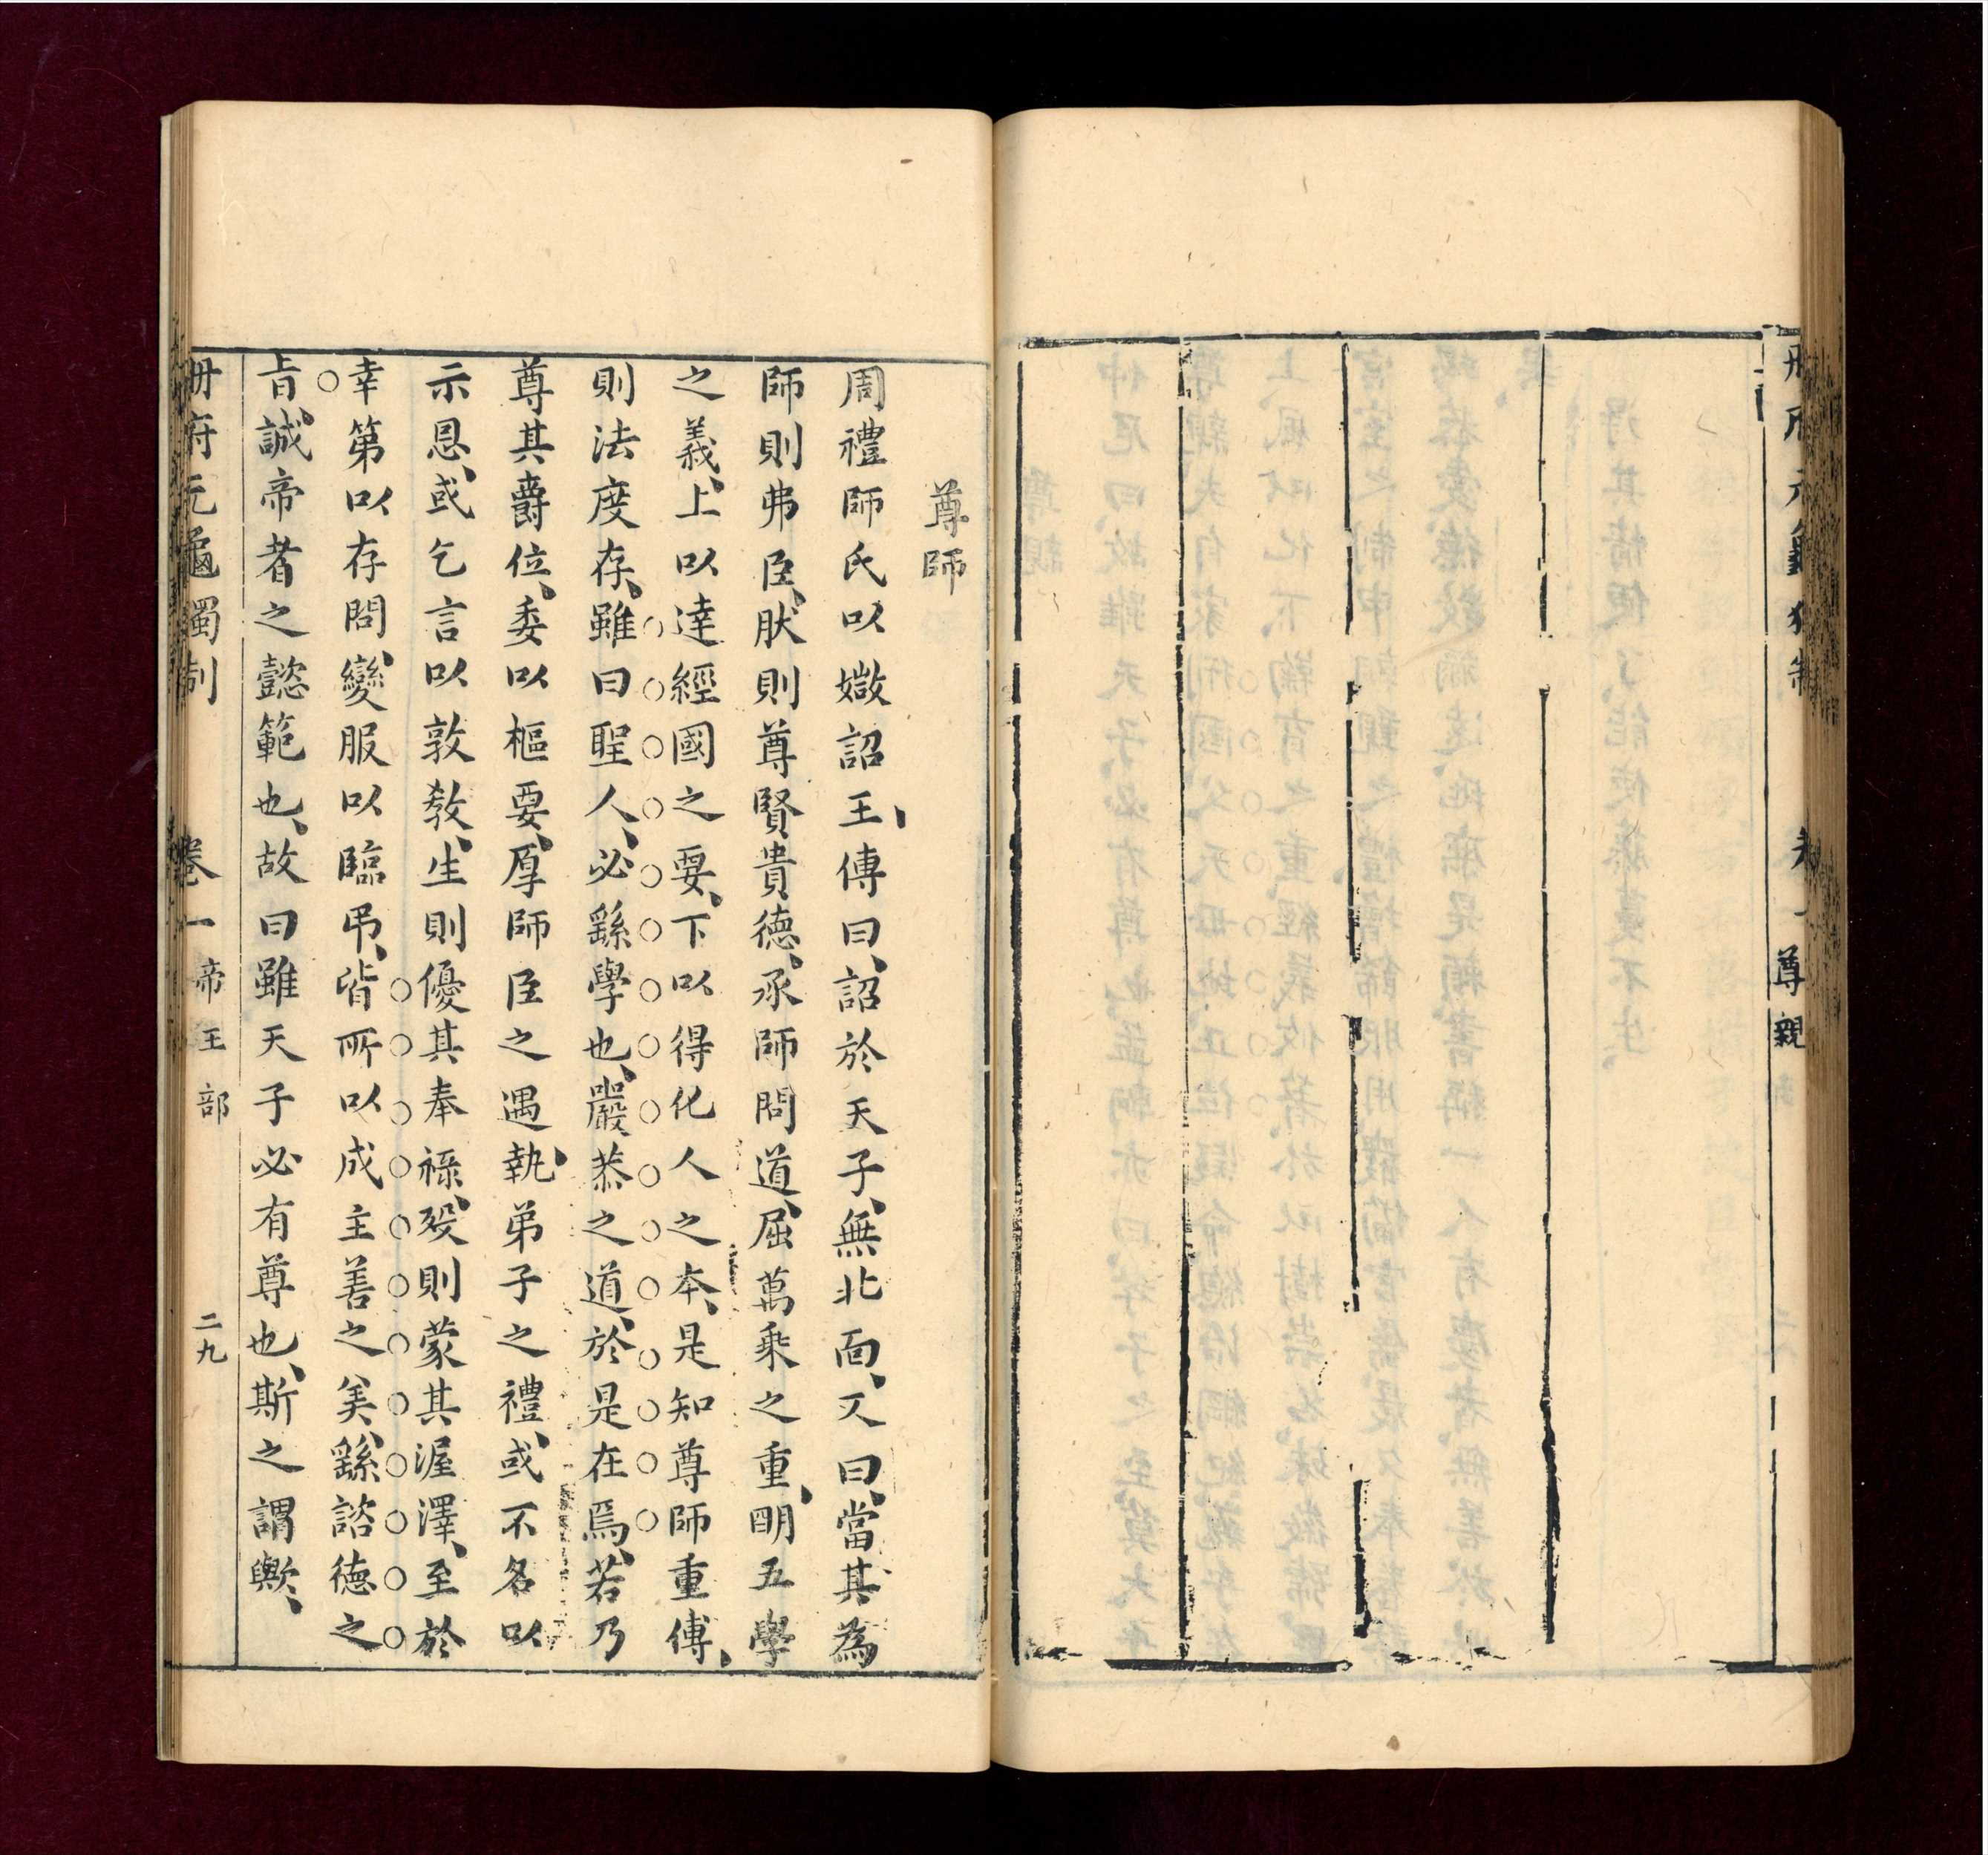 尊親
尊師
周禮師氏以媺詔王傳曰詔於天子無北面又曰當其為
師則弗臣肰則尊賢貴德承師問道屈萬乘之重明五學
之義上以達經國之要下以得化人之本是知尊師重傅
則法度存雖曰聖人必繇學也嚴恭之道於是在焉若乃
尊其爵位委以樞要厚師臣之遇執弟子之禮或不名以
示恩或乞言以敦教生則優其奉祿歿則蒙其渥澤至於
幸第以存問變服以臨弔皆所以成主善之美繇諮德之
旨誠帝者之懿範也故曰雖天子必有尊也斯之謂歟
冊府元龜獨制 卷一 帝王部 二九